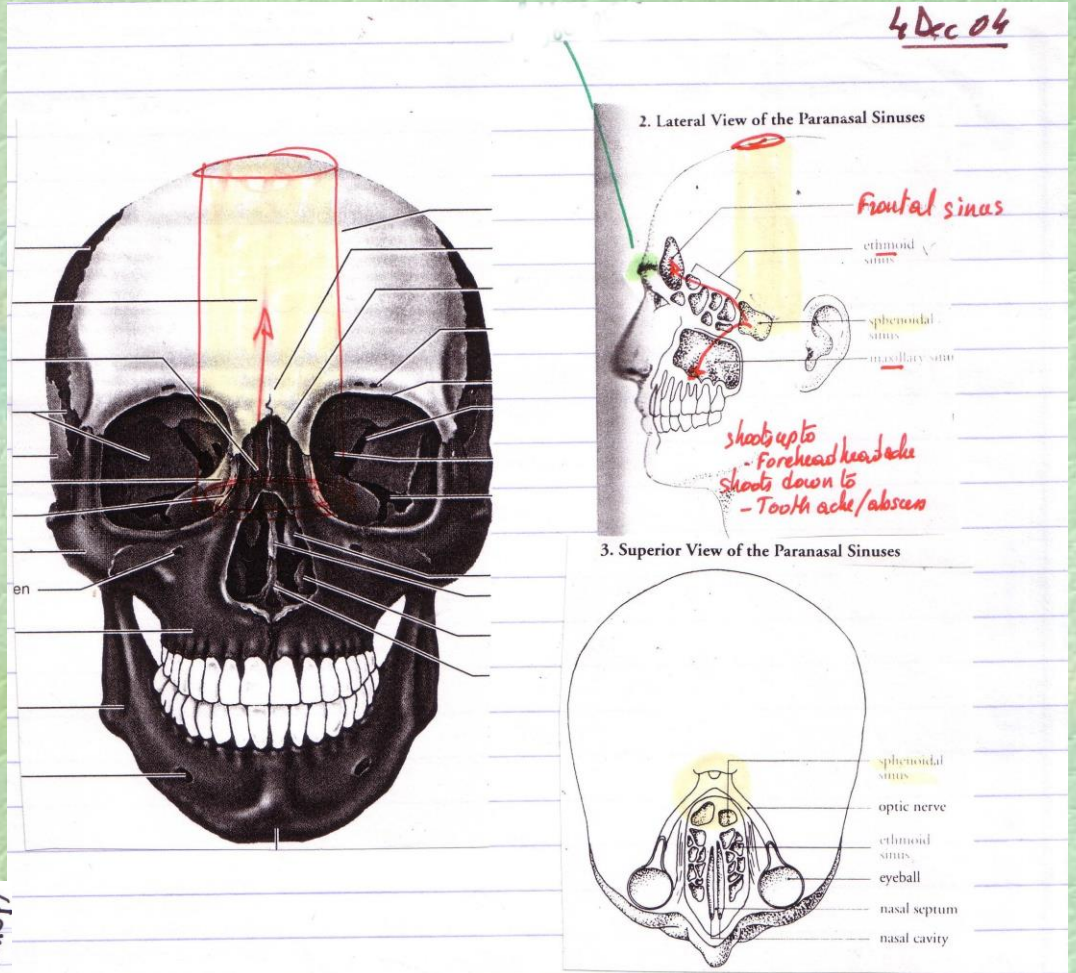 4 Dec 04
2. Lateral View of the Paranasal Sinuses
Frontal sinus
ethmoid
sinus
sphenoidal
sinus
maxillary sinu
shoots up to
- Forehead headache
shoots down to
- Tooth ache/abscess
3. Superior View of the Paranasal Sinuses
en
sphenoidal
sinus
optic nerve
ethmoid
sinus
eyeball
nasal septum
nasal cavity